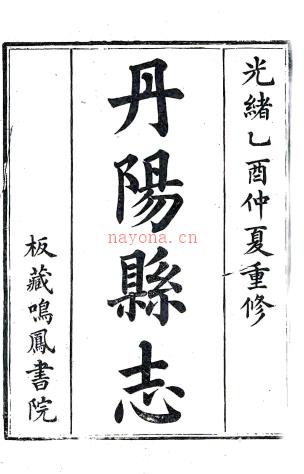 光緒乙酉仲夏重修
丹陽縣志
板藏鳴鳳書院
nayona.cn